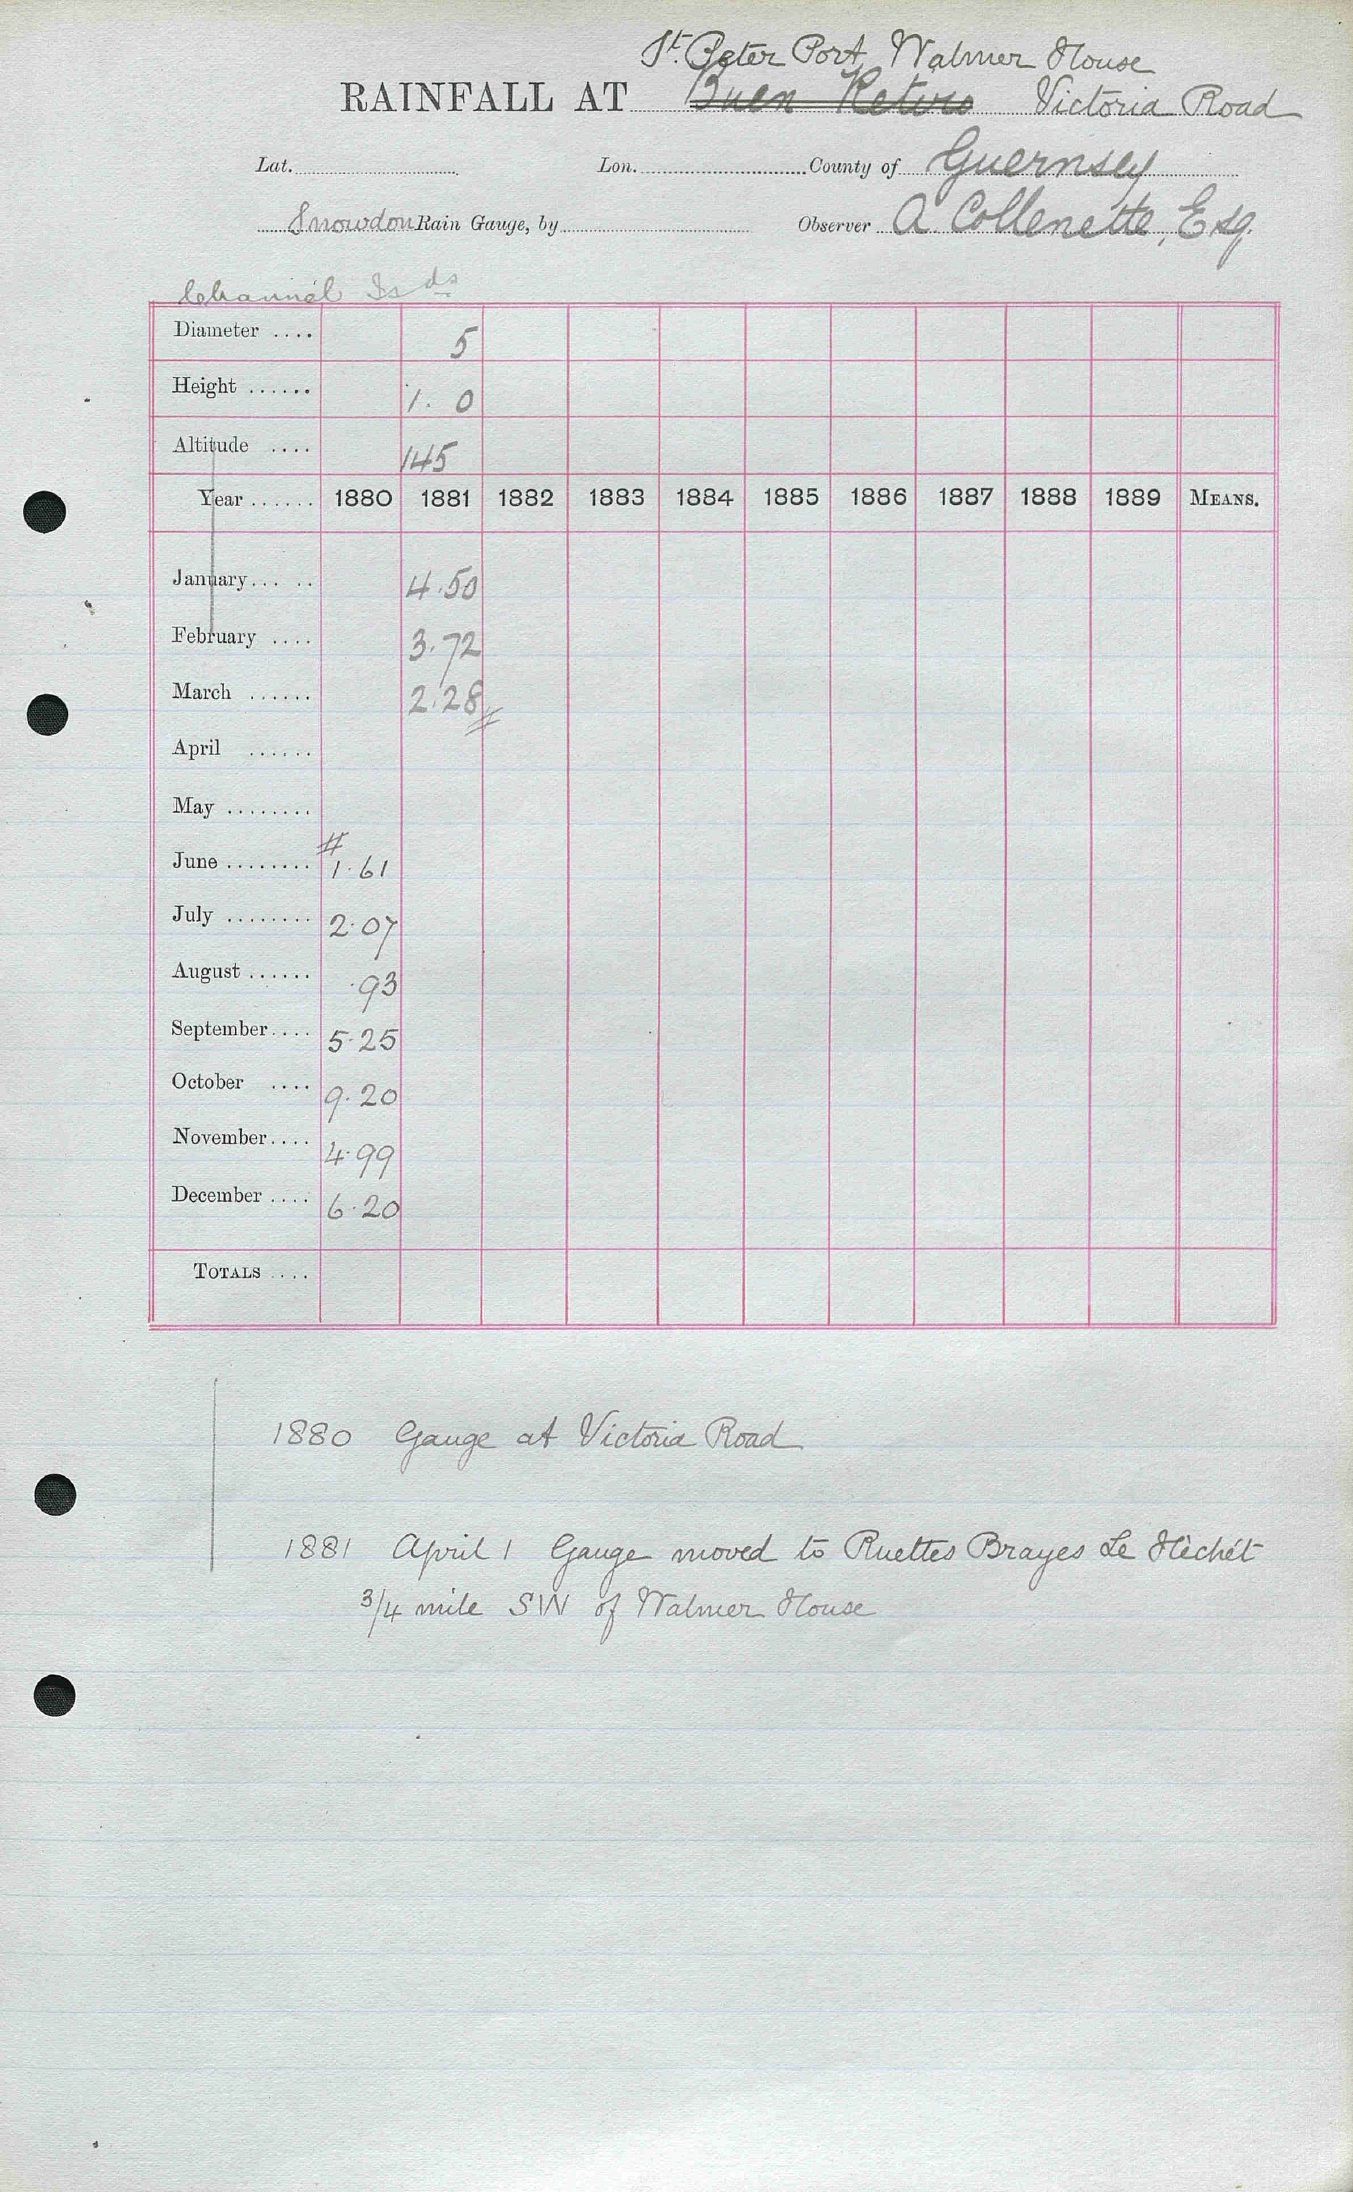 St. Peter Port, Walmer House
RAINFALL AT Buen Retiro Victoria Road
Lat. Lon. County of Guernsey
Snowdon Rain Gauge, by Observer A. Collenette, Esq.
Channel Isds
Diameter .... 5
Height ...... 1. 0
Altitude .... 145
Year ...... 1880 1881 1882 1883 1884 1885 1886 1887 1888 1889 MEANS.
January... .. 4.50
February .... 3.72
March ...... 2.28 #
April ......
May ........
June ........ # 1.61
July ........ 2.07
August ...... .93
September.... 5.25
October .... 9.20
November.... 4.99
December .... 6.20
TOTALS ....
1880 Gauge at Victoria Road
1881 April 1 Gauge moved to Ruettes Brayes Le Hèchét
3/4 mile SW of Walmer House